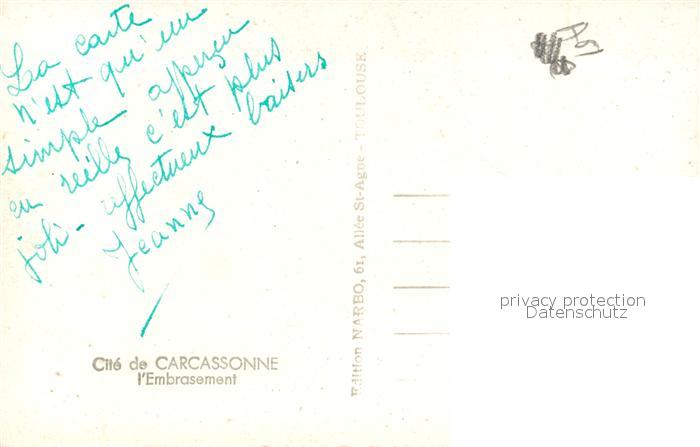 La carte
n'est qu'un
simple aperçu
en réelle c'est plus
joli - affectueux baisers
Jeanne
Cité de CARCASSONNE
l'Embrasement
Edition NARBO, 61, Allée St-Agne - TOULOUSE
privacy protection
Datenschutz